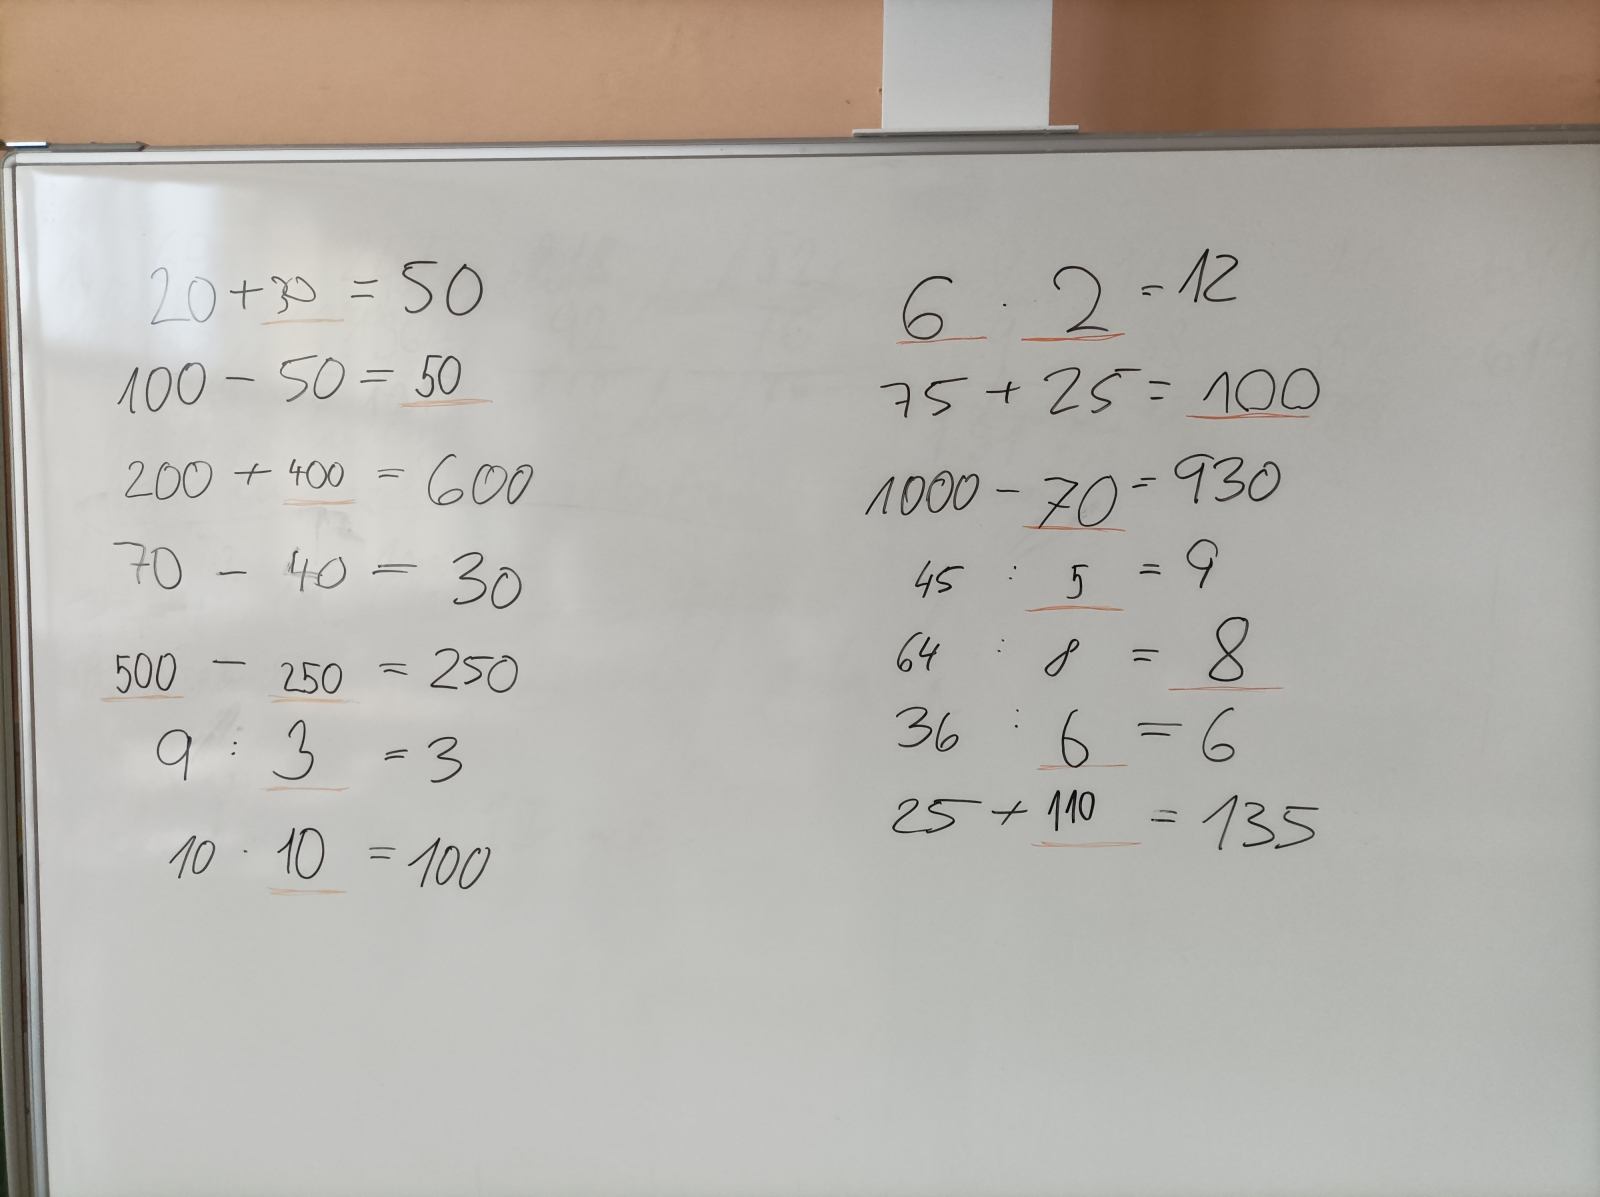 20 + 30 = 50
100 - 50 = 50
200 + 400 = 600
70 - 40 = 30
500 - 250 = 250
9 : 3 = 3
10 · 10 = 100
6 · 2 = 12
75 + 25 = 100
1000 - 70 = 930
45 : 5 = 9
64 : 8 = 8
36 : 6 = 6
25 + 110 = 135